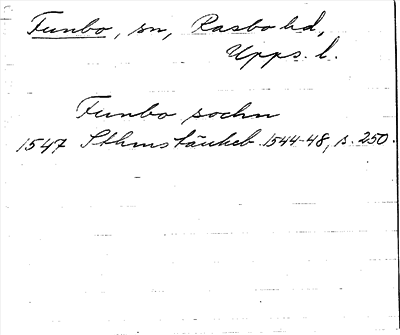 Funbo, sn, Rasbo hd,
Upps. l.
Funbo sochn
1547 Sthms tänkeb. 1544-48, s. 250.